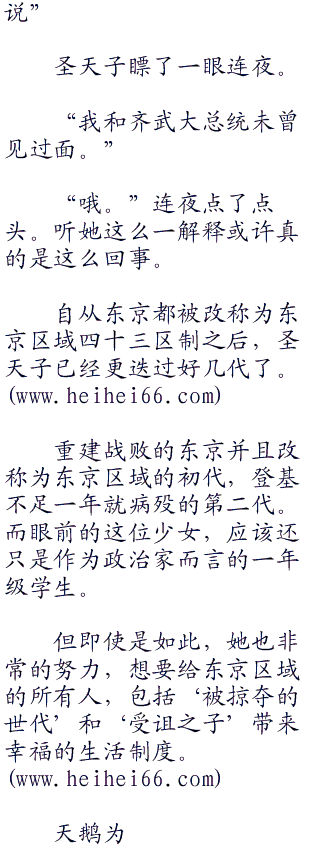 说”
圣天子瞟了一眼连夜。
“我和齐武大总统未曾
见过面。”
“哦。”连夜点了点
头。听她这么一解释或许真
的是这么回事。
自从东京都被改称为东
京区域四十三区制之后，圣
天子已经更迭过好几代了。
(www.heihei66.com)
重建战败的东京并且改
称为东京区域的初代，登基
不足一年就病殁的第二代。
而眼前的这位少女，应该还
只是作为政治家而言的一年
级学生。
但即使是如此，她也非
常的努力，想要给东京区域
的所有人，包括‘被掠夺的
世代’和‘受诅之子’带来
幸福的生活制度。
(www.heihei66.com)
天鹅为